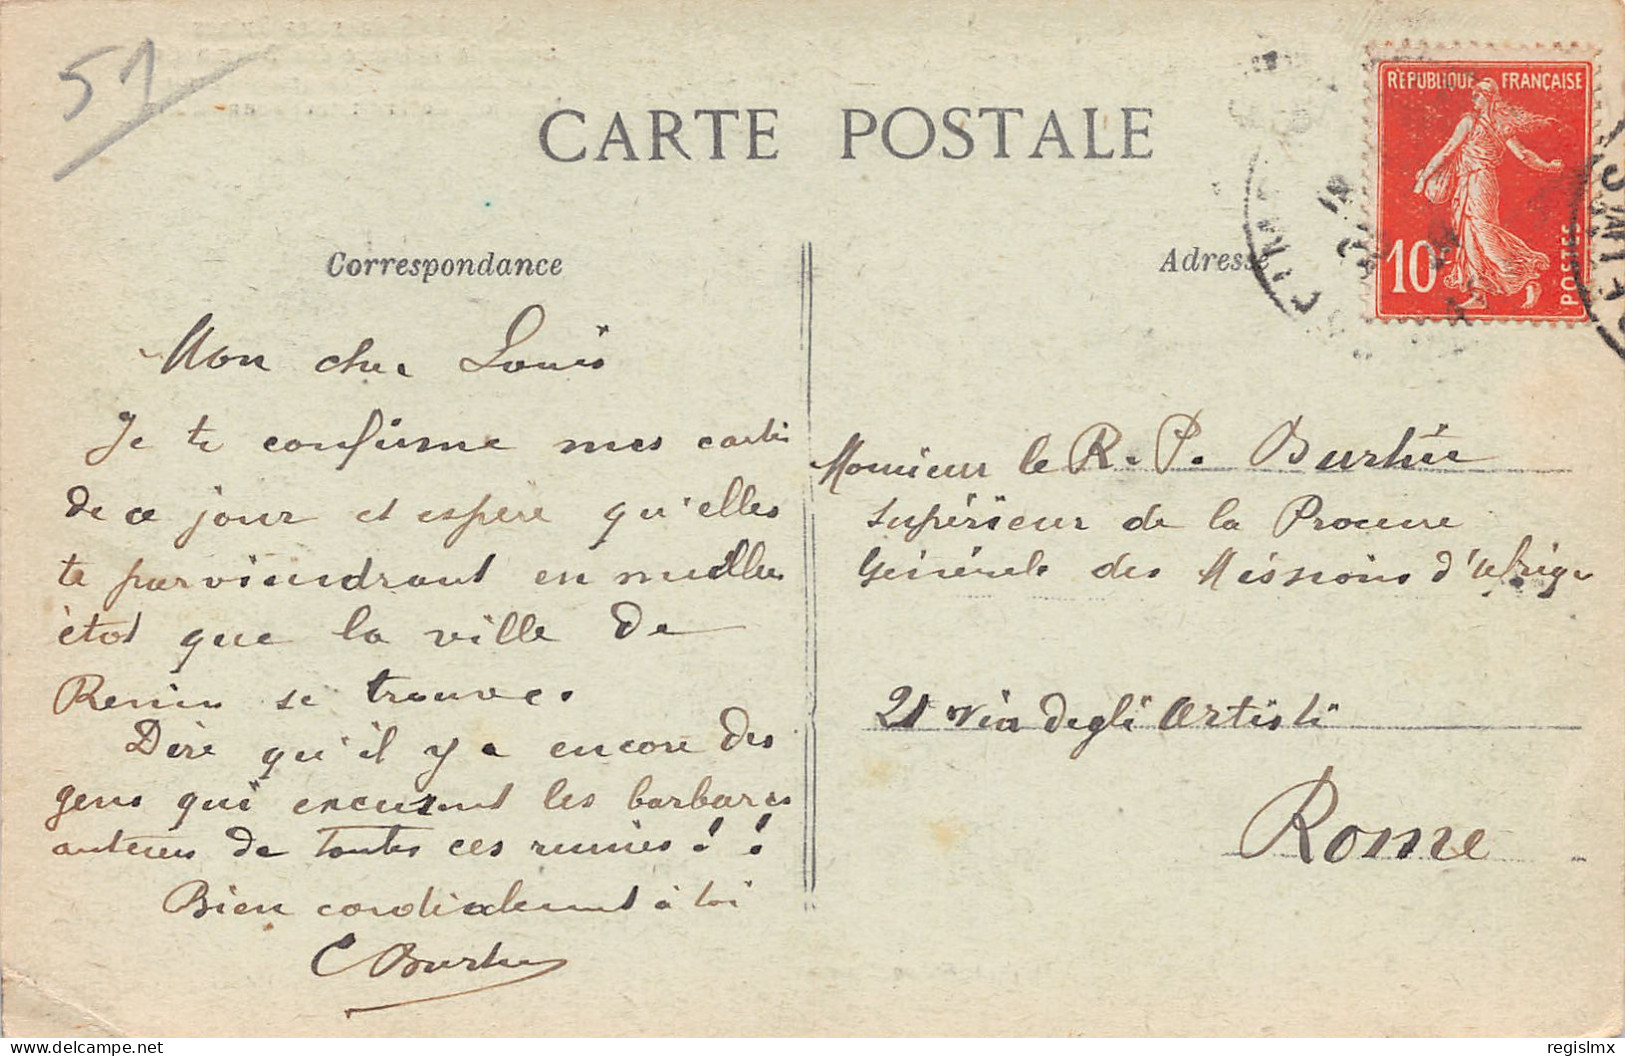 51
CARTE POSTALE
RÉPUBLIQUE FRANÇAISE
10
POSTES
Correspondance
Adresse
Mon cher Louis
Je te confirme mes cartes
de ce jour et espère qu'elles
te parviendront en meilleur
état que la ville de
Reims se trouve.
Dire qu'il y a encore des
gens qui excusent les barbares
auteurs de toutes ces ruines ! !
Bien cordialement à toi
Monsieur le R. P. Burtin
Supérieur de la Procure
Générale des Missions d'Afrique
21 via degli Artisti
Rome
delcampe.net
regislmx